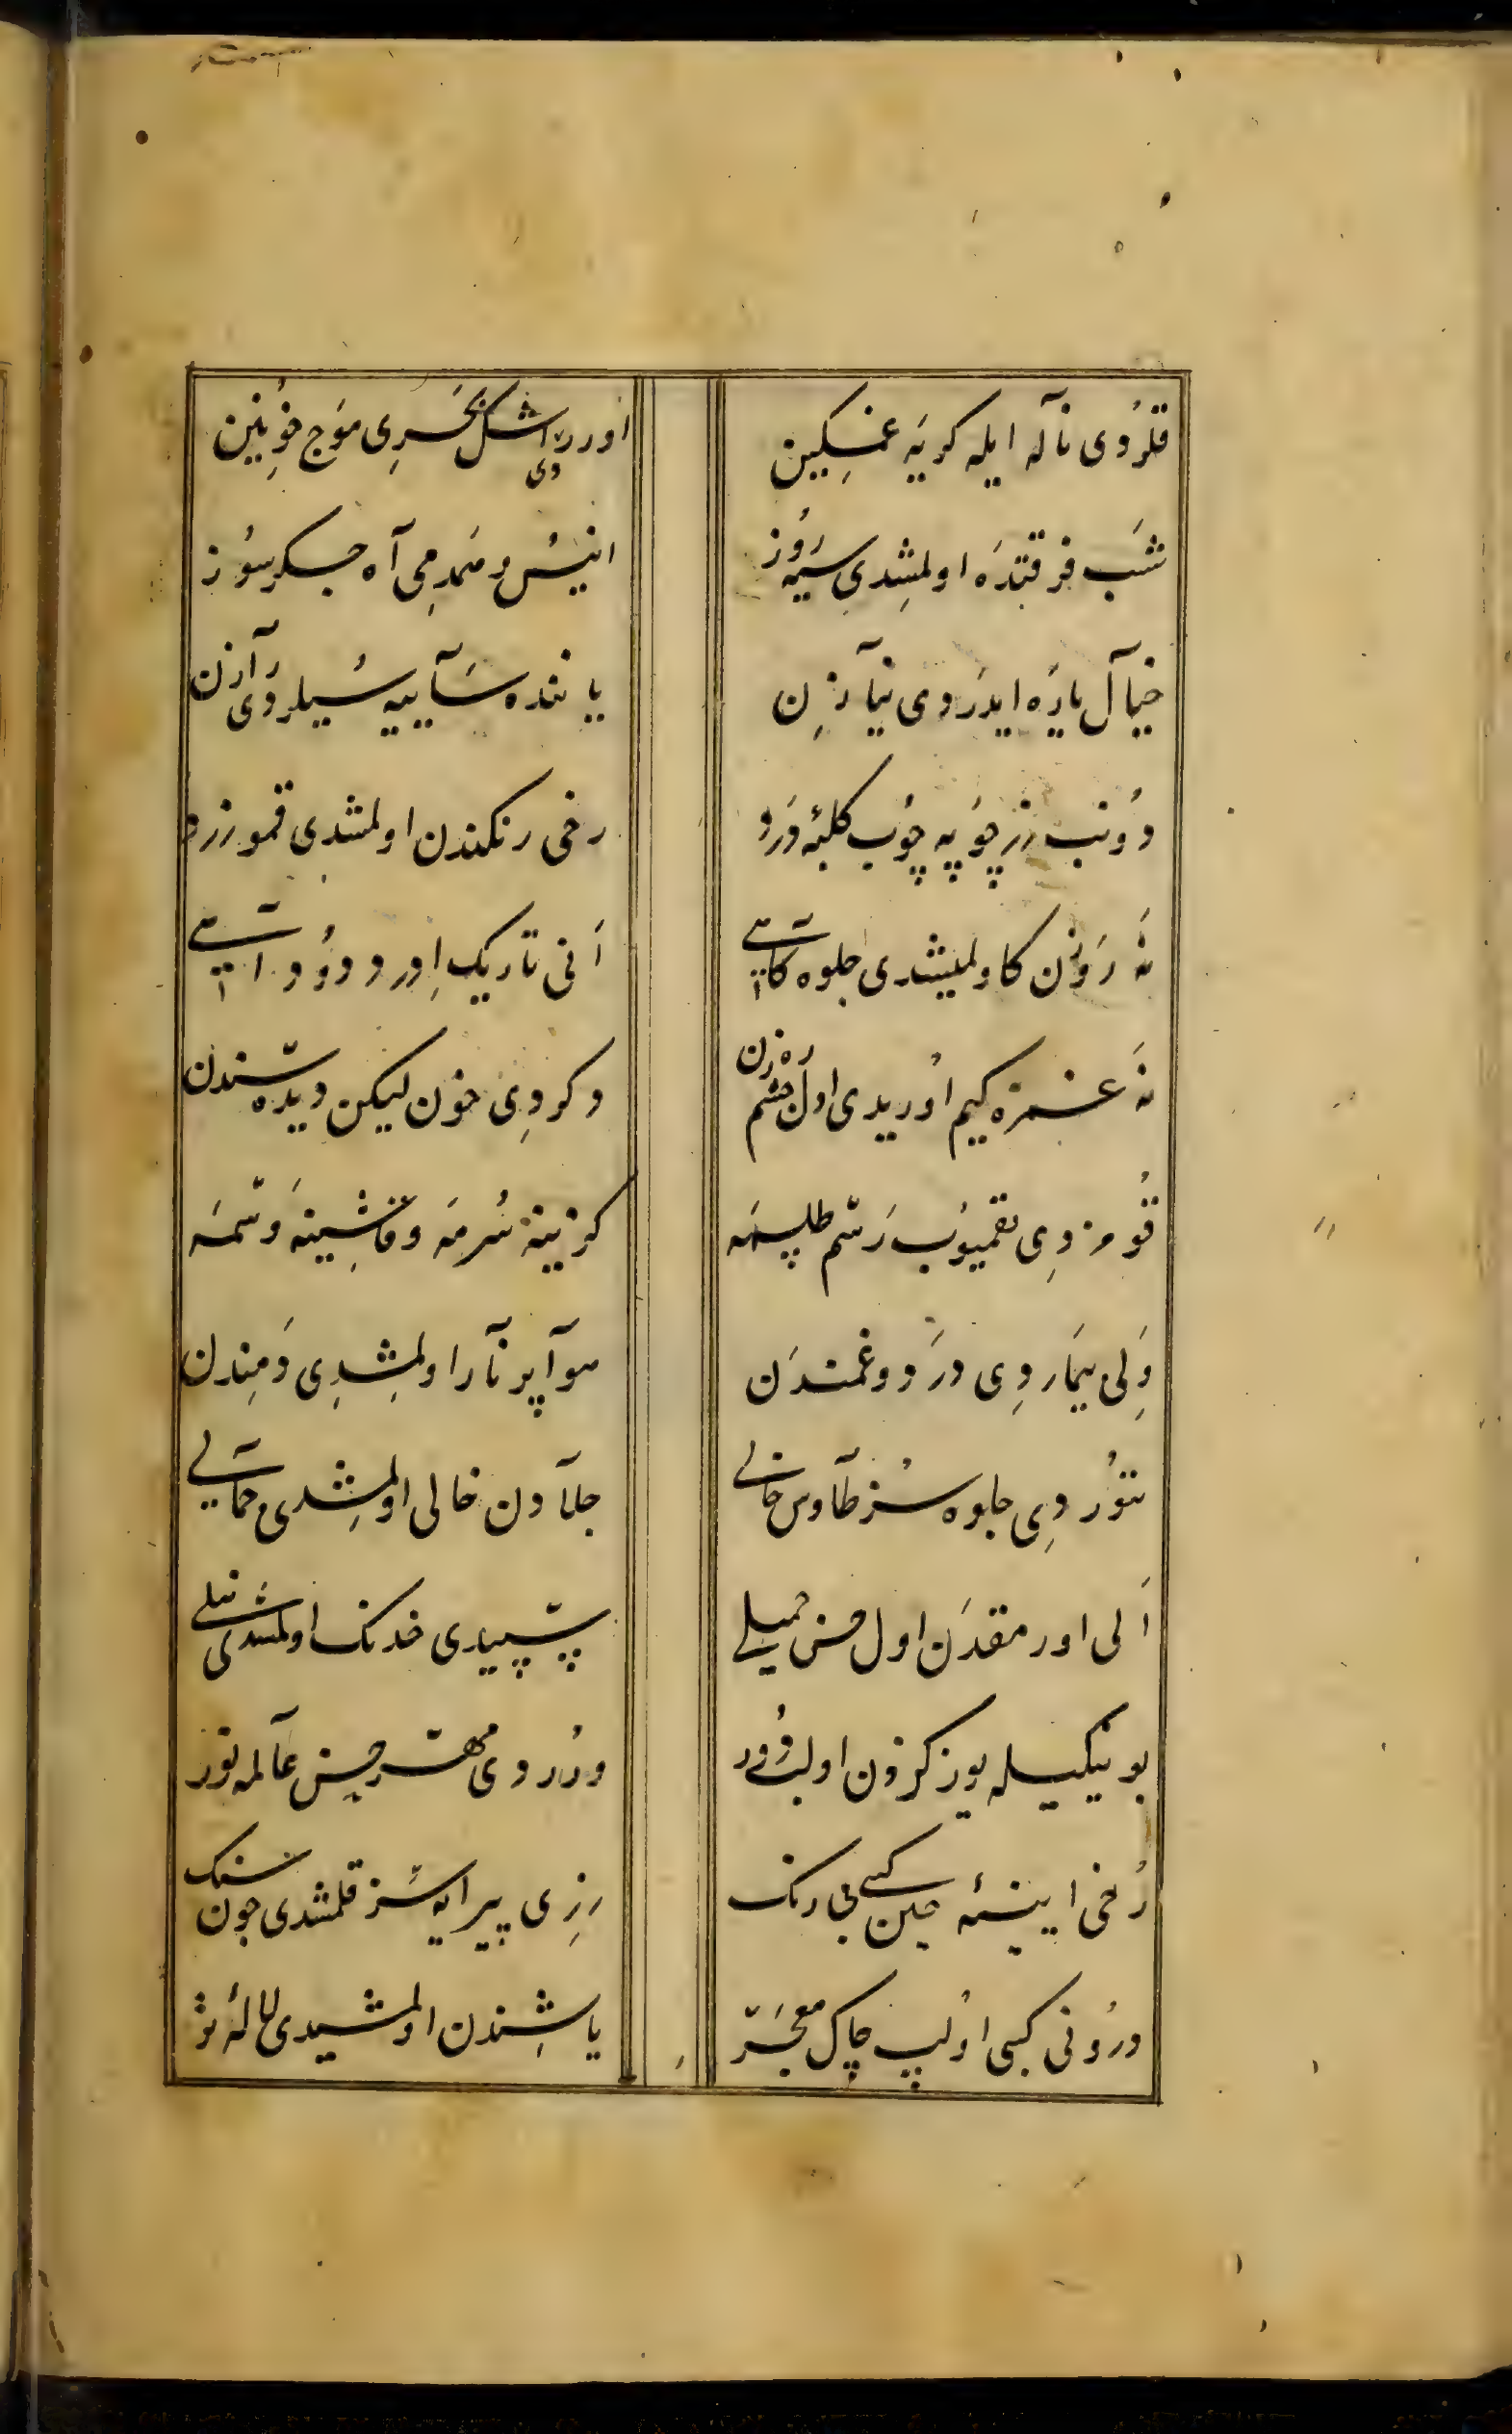 قلردی ناله ایله کریه غمکین
اورردی اشک بحری موج خونین
شب فرقتده اولمشدی سیه روز
انیس و همدمی آه جکرسوز
خیال یاره ایدردی نیازن
یاننده ساییه سیلردی رازن
دونب زر چوپه چوب کلبۀ درد
رخی رنکندن اولمشدی قمو زرد
نه روزن کاولمیشدی جلوه کاهی
انی تاریک اوردو دود آهی
نه غمزه کیم اوریدی اول چشم رهزن
دکردی خون لیکن دیده سندن
قومزدی یقمیوب رسم طلسمه
کوزینه سرمه و قاشینه وسمه
ولی بیماردی درد و غمندن
هوا پر نار اولمشدی دمندن
تنوردی جلوه سز طاوس خالی
جلادن خالی اولمشدی جمالی
الی اورمقدن اول حسن جمیلی
پسپیدی خدنک اولمشدی نیلی
بو نیکیله یوز کزدن اولب دور
ویرردی مهر حسن عالمه نور
رخی ایینۀ چین کبی بی رنک
رزی پیرایه سز قلمشدی چون سنک
درونی کبی اولپ چاک معجر
یاشندن اولمشیدی لالۀ تر